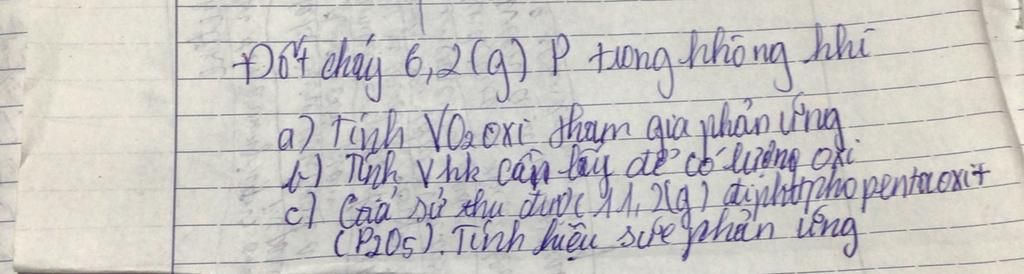 Đốt cháy 6,2(g) P trong không khí
a) Tính VO2 oxi tham gia phản ứng
b) Tính Vkk cần lấy để có lượng oxi
c) Giả sử thu được 11,2(g) điphotpho pentaoxit
(P2O5). Tính hiệu suất phản ứng